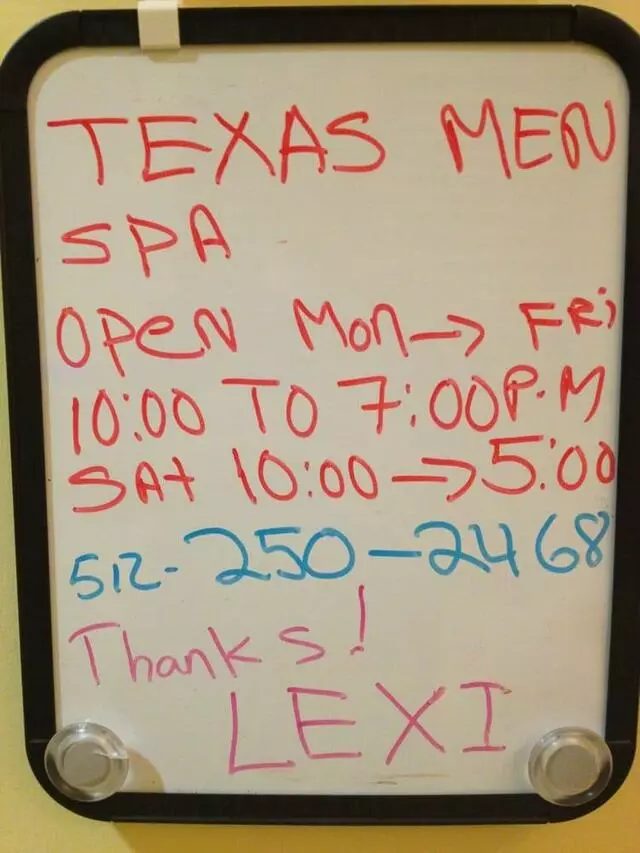 TEXAS MEN
SPA
OPEN Mon→ FRi
10:00 TO 7:00P.M
SAt 10:00→5:00
512-250-2468
Thanks!
LEXI